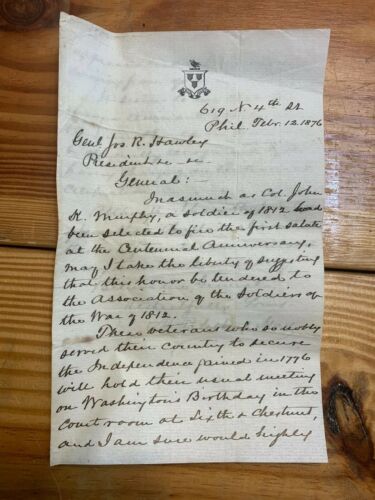 619 N 4th St
Phil. Febr. 12. 1876
Genl Jos R. Hawley
President &c &c
General:-
Inasmuch as Col. John
K. Murphy, a Soldier of 1812 had
been selected to fire the first salute
at the Centennial Anniversary,
may I take the liberty of suggesting
that this honor be tendered to
the Association of the Soldiers of
the War of 1812.
These veterans who so nobly
served their Country to secure
the Independence gained in 1776
will hold their usual meeting
on Washington's Birthday in the
Court room at Sixth & Chestnut,
and I am sure would highly